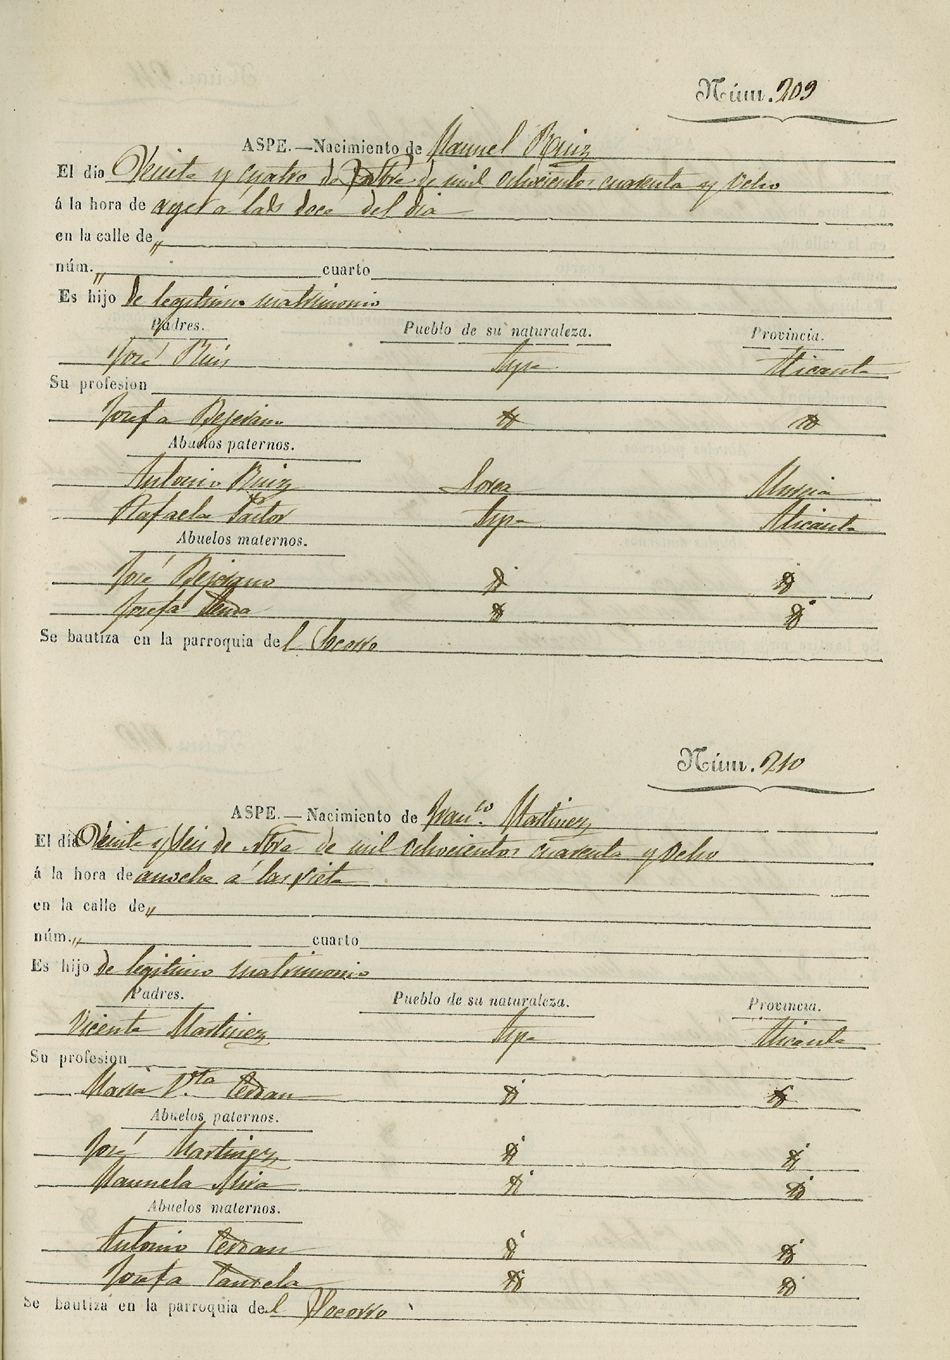 Núm. 209
ASPE.—Nacimiento de Manuel Ruiz
El dia Veinte y cuatro de de mil ochocientos cuarenta y ocho
á la hora de ayer a las doce del dia
en la calle de „
núm. „ cuarto
Es hijo de legitimo matrimonio
Padres. Pueblo de su naturaleza. Provincia.
José Ruis Aspe Alicante
Su profesion
Josefa Bejerano
Abuelos paternos.
Antonio Ruiz Lorca Murcia
Rafaela Pastor Aspe Alicante
Abuelos maternos.
José Bejerano
Josefa
Se bautiza en la parroquia del Socorro
Núm. 210
ASPE.—Nacimiento de Franco. Martinez
El dia Veinte y seis de de mil ochocientos cuarenta y ocho
á la hora de anoche á las siete
en la calle de „
núm. „ cuarto
Es hijo de legitimo matrimonio
Padres. Pueblo de su naturaleza. Provincia.
Vicente Martinez Aspe Alicante
Su profesion
Maria Vta.
Abuelos paternos.
José Martinez
Manuela Mira
Abuelos maternos.
Antonio
Josefa
Se bautiza en la parroquia del Socorro